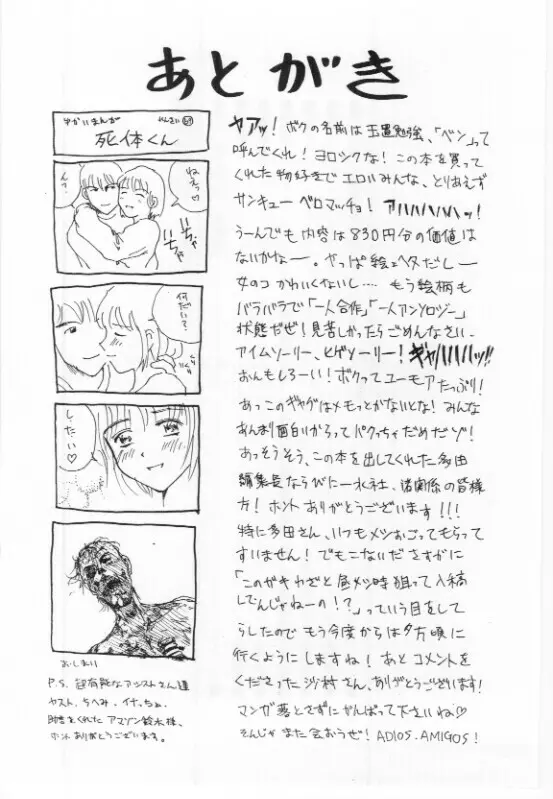 あとがき
ヤアッ！ボクの名前は玉置勉強、「ベン」って
呼んでくれ！ヨロシクな！この本を買って
くれた物好きでエロいみんな、とりあえず
サンキューベロマッチョ！アハハハハハッ！
うーんでも内容は830円分の価値は
ないかなー。やっぱ絵ェヘタだしー
女のコかわいくないし…… もう絵柄も
バラバラで「一人合作」「一人アンソロジー」
状態だぜ！見苦しかったらごめんなさい。
アイムソーリー、ヒゲソーリー！ギャハハハハッ!!
おんもしろーい！ボクってユーモアたっぷり！
あっこのギャグはメモっとかないとな！みんな
あんまり面白いからってパクっちゃだめだゾ！
あっそうそう、この本を出してくれた多田
編集長ならびに一水社、諸関係の皆様
方！ホントありがとうございます！！！
特に多田さん、いつもメシおごってもらって
すいません！でもこないださすがに
「このガキわざと昼メシ時狙って入稿
してんじゃねーの！？」っていう目をして
らしたのでもう今度からは夕方頃に
行くようにしますね！あとコメントを
くださった沙村さん、ありがとうございます！
マンガ落とさずにがんばって下さいね♡
そんじゃまた会おうぜ！ADIOS.AMIGOS！
死体くん
ねぇ♡
ん？
いちゃ
いちゃ
何だい？
したい♡
おしまい
P.S. 超有能なアシストさん達
ヤスト、ちへみ、イナっちょ、
助言をくれたアマゾン鈴木様、
ホントありがとうございます。